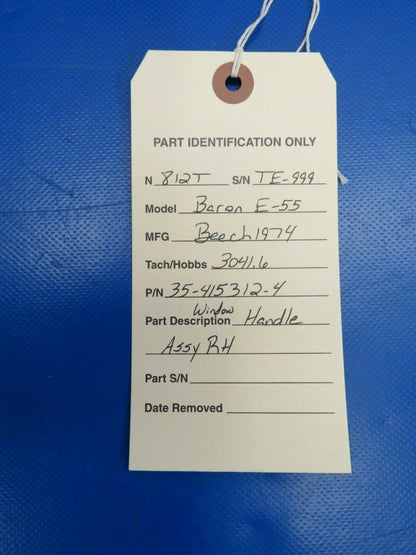 PART IDENTIFICATION ONLY
N 812T S/N TE-999
Model Baron E-55
MFG Beech 1974
Tach/Hobbs 3041.6
P/N 35-415312-4
Part Description Window Handle
Assy RH
Part S/N
Date Removed